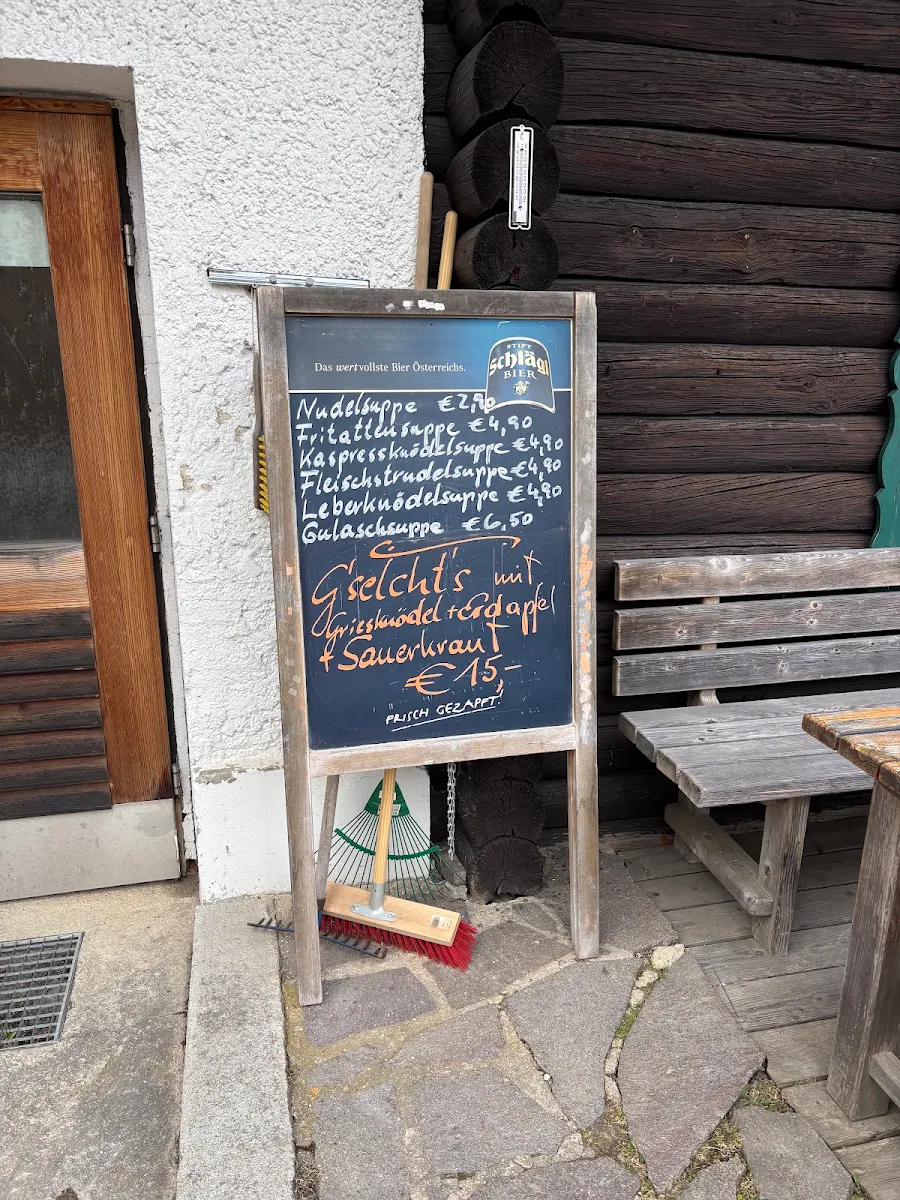 Das wertvollste Bier Österreichs.
STIFT
Schlägl
BIER
Nudelsuppe €2,90
Fritattensuppe €4,90
Kaspressknödelsuppe €4,90
Fleischstrudelsuppe €4,90
Leberknödelsuppe €4,90
Gulaschsuppe €6,50
G'selcht's mit
Griesknödel + Erdapfel
+ Sauerkraut
€ 15,-
FRISCH GEZAPFT!